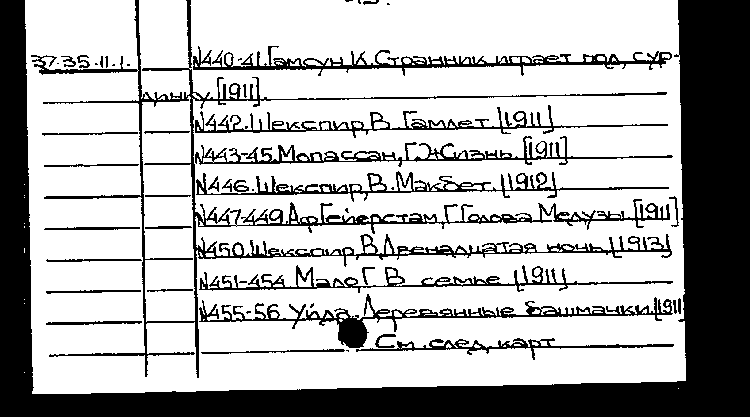 37.35.11.1. N440-41.Гамсун,К.Странник играет под сур-
динку.[1911].
N442.Шекспир,В.Гамлет.[1911]
N443-45.Мопассан,Г.Жизнь.[1911]
N446.Шекспир,В.Макбет.[1912]
N447-449.Аф Гейерстам,Г.Голова Медузы.[1911]
N450.Шекспир,В.Двенадцатая ночь.[1913]
N451-454.Мало,Г.В семье.[1911].
N455-56.Уйда.Деревянные башмачки.[1911
См.след.карт